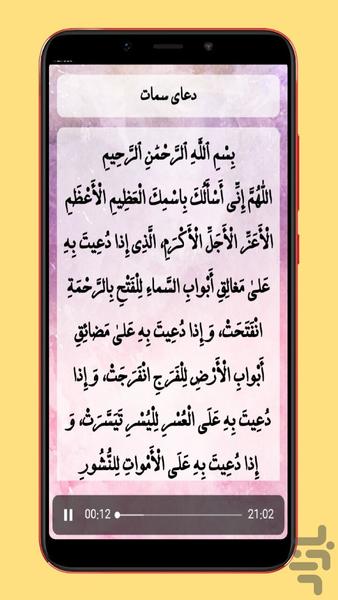 دعای سمات
بِسْمِ ٱللَّهِ ٱلرَّحْمَٰنِ ٱلرَّحِيمِ
اللّٰهُمَّ إِنِّى أَسْأَلُكَ بِاسْمِكَ الْعَظِيمِ الْأَعْظَمِ
الْأَعَزِّ الْأَجَلِّ الْأَكْرَمِ، الَّذِى إِذا دُعِيتَ بِهِ
عَلىٰ مَغالِقِ أَبْوابِ السَّماءِ لِلْفَتْحِ بِالرَّحْمَةِ
انْفَتَحَتْ، وَ إِذا دُعِيتَ بِهِ عَلىٰ مَضائِقِ
أَبْوابِ الْأَرْضِ لِلْفَرَجِ انْفَرَجَتْ، وَ إِذا
دُعِيتَ بِهِ عَلَى الْعُسْرِ لِلْيُسْرِ تَيَسَّرَتْ، وَ
إِذا دُعِيتَ بِهِ عَلَى الْأَمْواتِ لِلنُّشُورِ
00:12 21:02